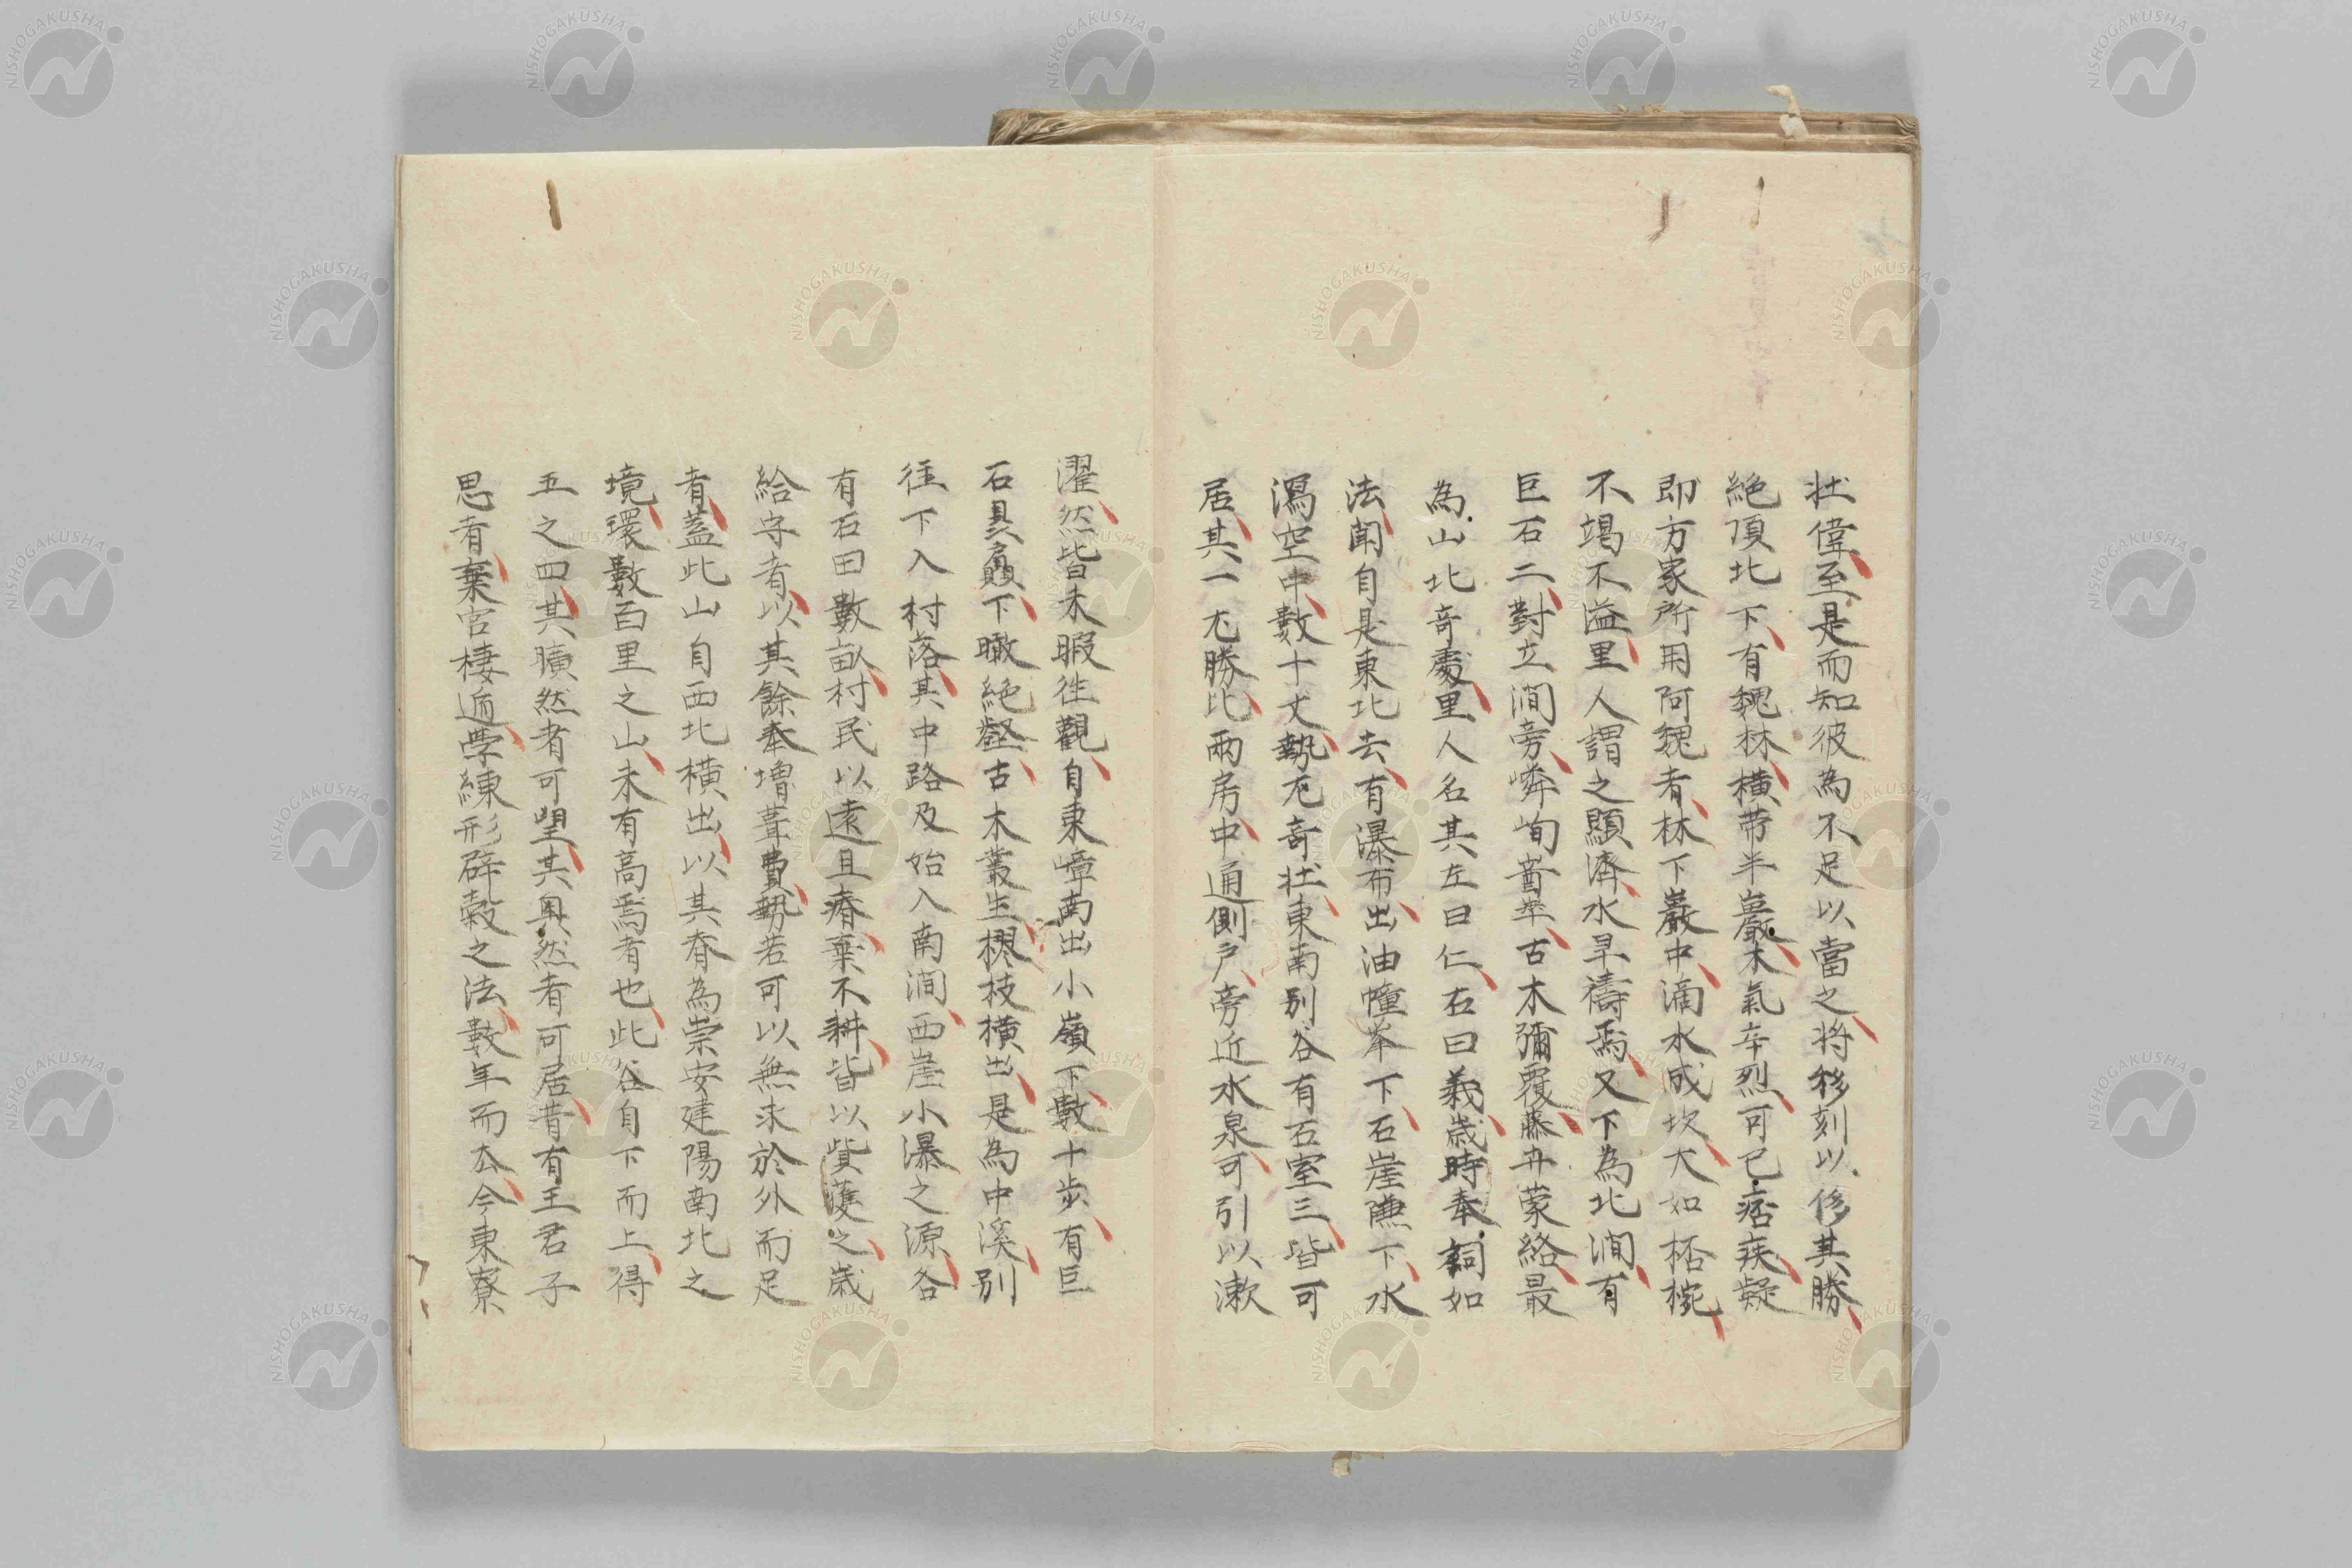 壮偉至是而知彼為不足以當之将移刻以侈其勝
絶頂北下有魏林横带半巖木氣辛烈可已痞疾疑
即方家所用阿魏者林下巖中滴水成坎大如桮椀
不竭不溢里人謂之顯濟水旱禱焉又下為北澗有
巨石二對立澗旁嶙峋崷崒古木彌覆藤卉蒙絡最
為山北奇處里人名其左曰仁右曰義歳時奉祠如
法聞自是東北去有瀑布出油幢峯下石崖隒下水
瀉空中數十丈勢尤奇壮東南别谷有石室三皆可
居其一尤勝比兩房中通側户旁近水泉可引以漱
濯然皆未暇徃觀自東嶂南出小嶺下數十步有巨
石㒹贔下瞰絶壑古木叢生樛枝横出是為中溪别
徃下入村落其中路及始入南澗西崖小瀑之源各
有石田數畝村民以遠且瘠棄不耕皆以貲獲之歳
給守者以其餘奉増葺費勢若可以無求於外而足
者蓋此山自西北横出以其脊為崇安建陽南北之
境環數百里之山未有高焉者也此谷自下而上得
五之四其曠然者可望其奥然者可居昔有王君子
思者棄官棲遁學練形辟穀之法數年而去今東寮